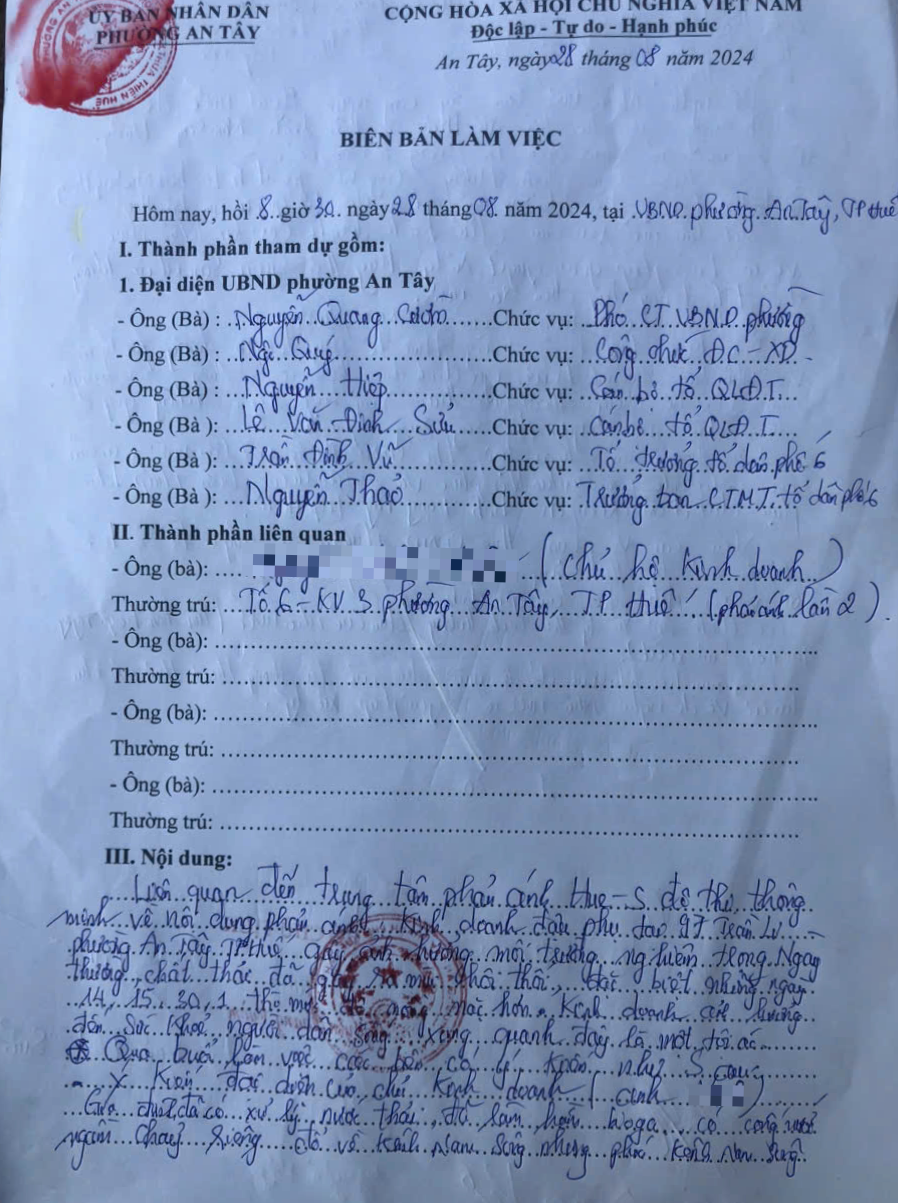 ỦY BAN NHÂN DÂN
PHƯỜNG AN TÂY
THỪA THIÊN HUẾ
CỘNG HÒA XÃ HỘI CHỦ NGHĨA VIỆT NAM
Độc lập - Tự do - Hạnh phúc
An Tây, ngày 28 tháng 08 năm 2024
BIÊN BẢN LÀM VIỆC
Hôm nay, hồi 8 giờ 30 ngày 28 tháng 08 năm 2024, tại UBND phường An Tây, TP Huế
I. Thành phần tham dự gồm:
1. Đại diện UBND phường An Tây
- Ông (Bà) : Nguyễn Quang Chức vụ: Phó CT UBND phường
- Ông (Bà) : Ngô Quý Chức vụ: Công chức ĐC-XD
- Ông (Bà) : Nguyễn Hiệp Chức vụ: Cán bộ tổ QLĐT
- Ông (Bà ): Lê Văn Đình Sửu Chức vụ: Cán bộ tổ QLĐT
- Ông (Bà ): Trần Đình Vũ Chức vụ: Tổ trưởng tổ dân phố 6
- Ông (Bà ): Nguyễn Thảo Chức vụ: Trưởng ban CTMT tổ dân phố 6
II. Thành phần liên quan
- Ông (bà): (Chủ hộ Kinh doanh)
Thường trú: Tổ 6 - KV 3 phường An Tây, TP Huế (phản ánh lần 2).
- Ông (bà):
Thường trú:
- Ông (bà):
Thường trú:
- Ông (bà):
Thường trú:
III. Nội dung:
Liên quan đến trung tâm phản ánh Hue-S đô thị thông
minh về nội dung phản ánh Kinh doanh đậu phụ 97 Trần Lư
phường An Tây TP Huế gây ảnh hưởng môi trường nghiêm trọng Ngày
thường chất thải đã gây ra mùi hôi thối, đặc biệt những ngày
14, 15, 30, 1 thì mùi nặng hơn Kinh doanh ảnh hưởng
đến sức khoẻ người dân sống xung quanh đây là một tội ác
Qua buổi làm việc các bên có ý kiến như sau
Ý kiến đại diện của chủ Kinh doanh (anh )
Gia đình đã có xử lý nước thải, đã làm hầm bioga có cống nước
ngầm chạy riêng đổ về kênh Nam Sông nhưng phía kênh Nam Sông